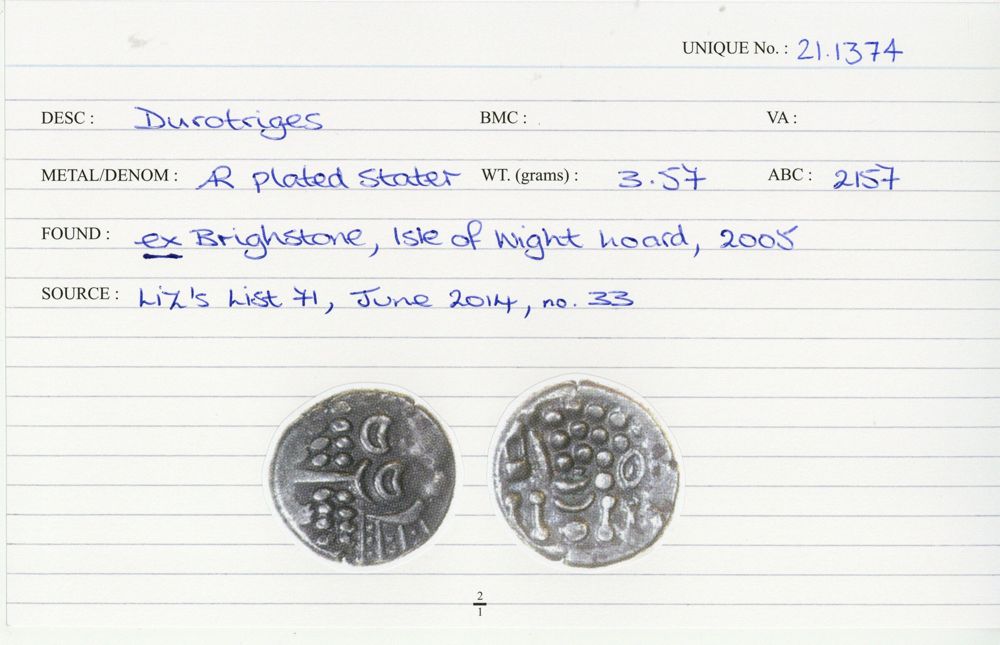 UNIQUE No. : 21.1374
DESC : Durotriges BMC : VA :
METAL/DENOM : AR plated stater WT. (grams) : 3.57 ABC : 2157
FOUND : ex Brighstone, Isle of Wight hoard, 2005
SOURCE : Liz's List 71, June 2014, no. 33
2
1